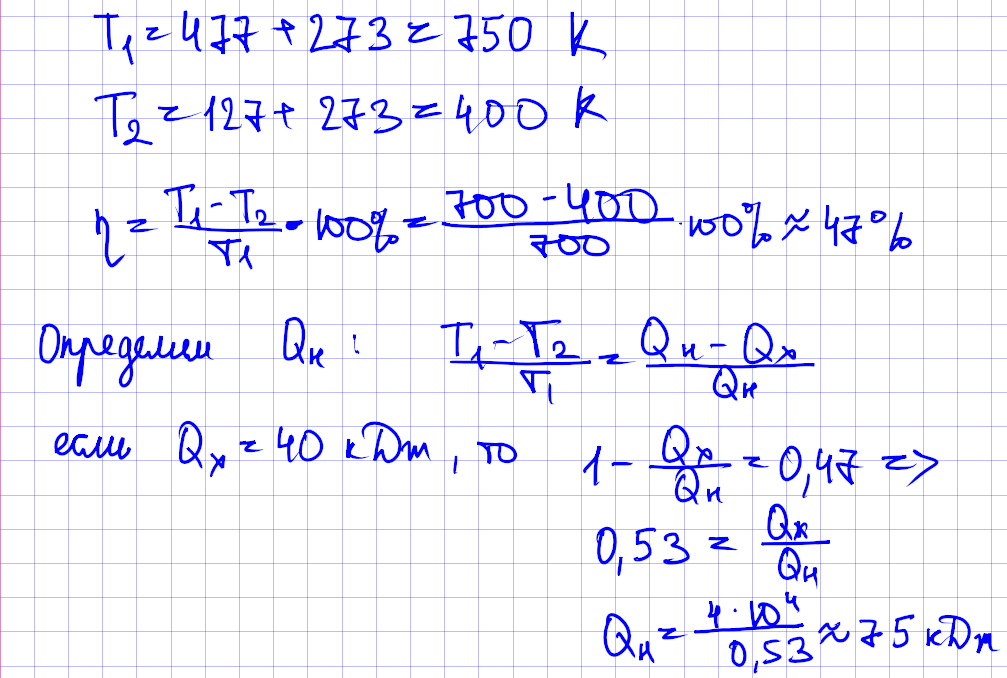 T₁ = 477 + 273 = 750 K
T₂ = 127 + 273 = 400 K
η = (T₁ - T₂)/T₁ · 100% = (700 - 400)/700 · 100% ≈ 47%
Определим Qн : (T₁ - T₂)/T₁ = (Qн - Qх)/Qн
если Qх = 40 кДж, то 1 - Qх/Qн = 0,47 =>
0,53 = Qх/Qн
Qн = 4·10⁴/0,53 ≈ 75 кДж